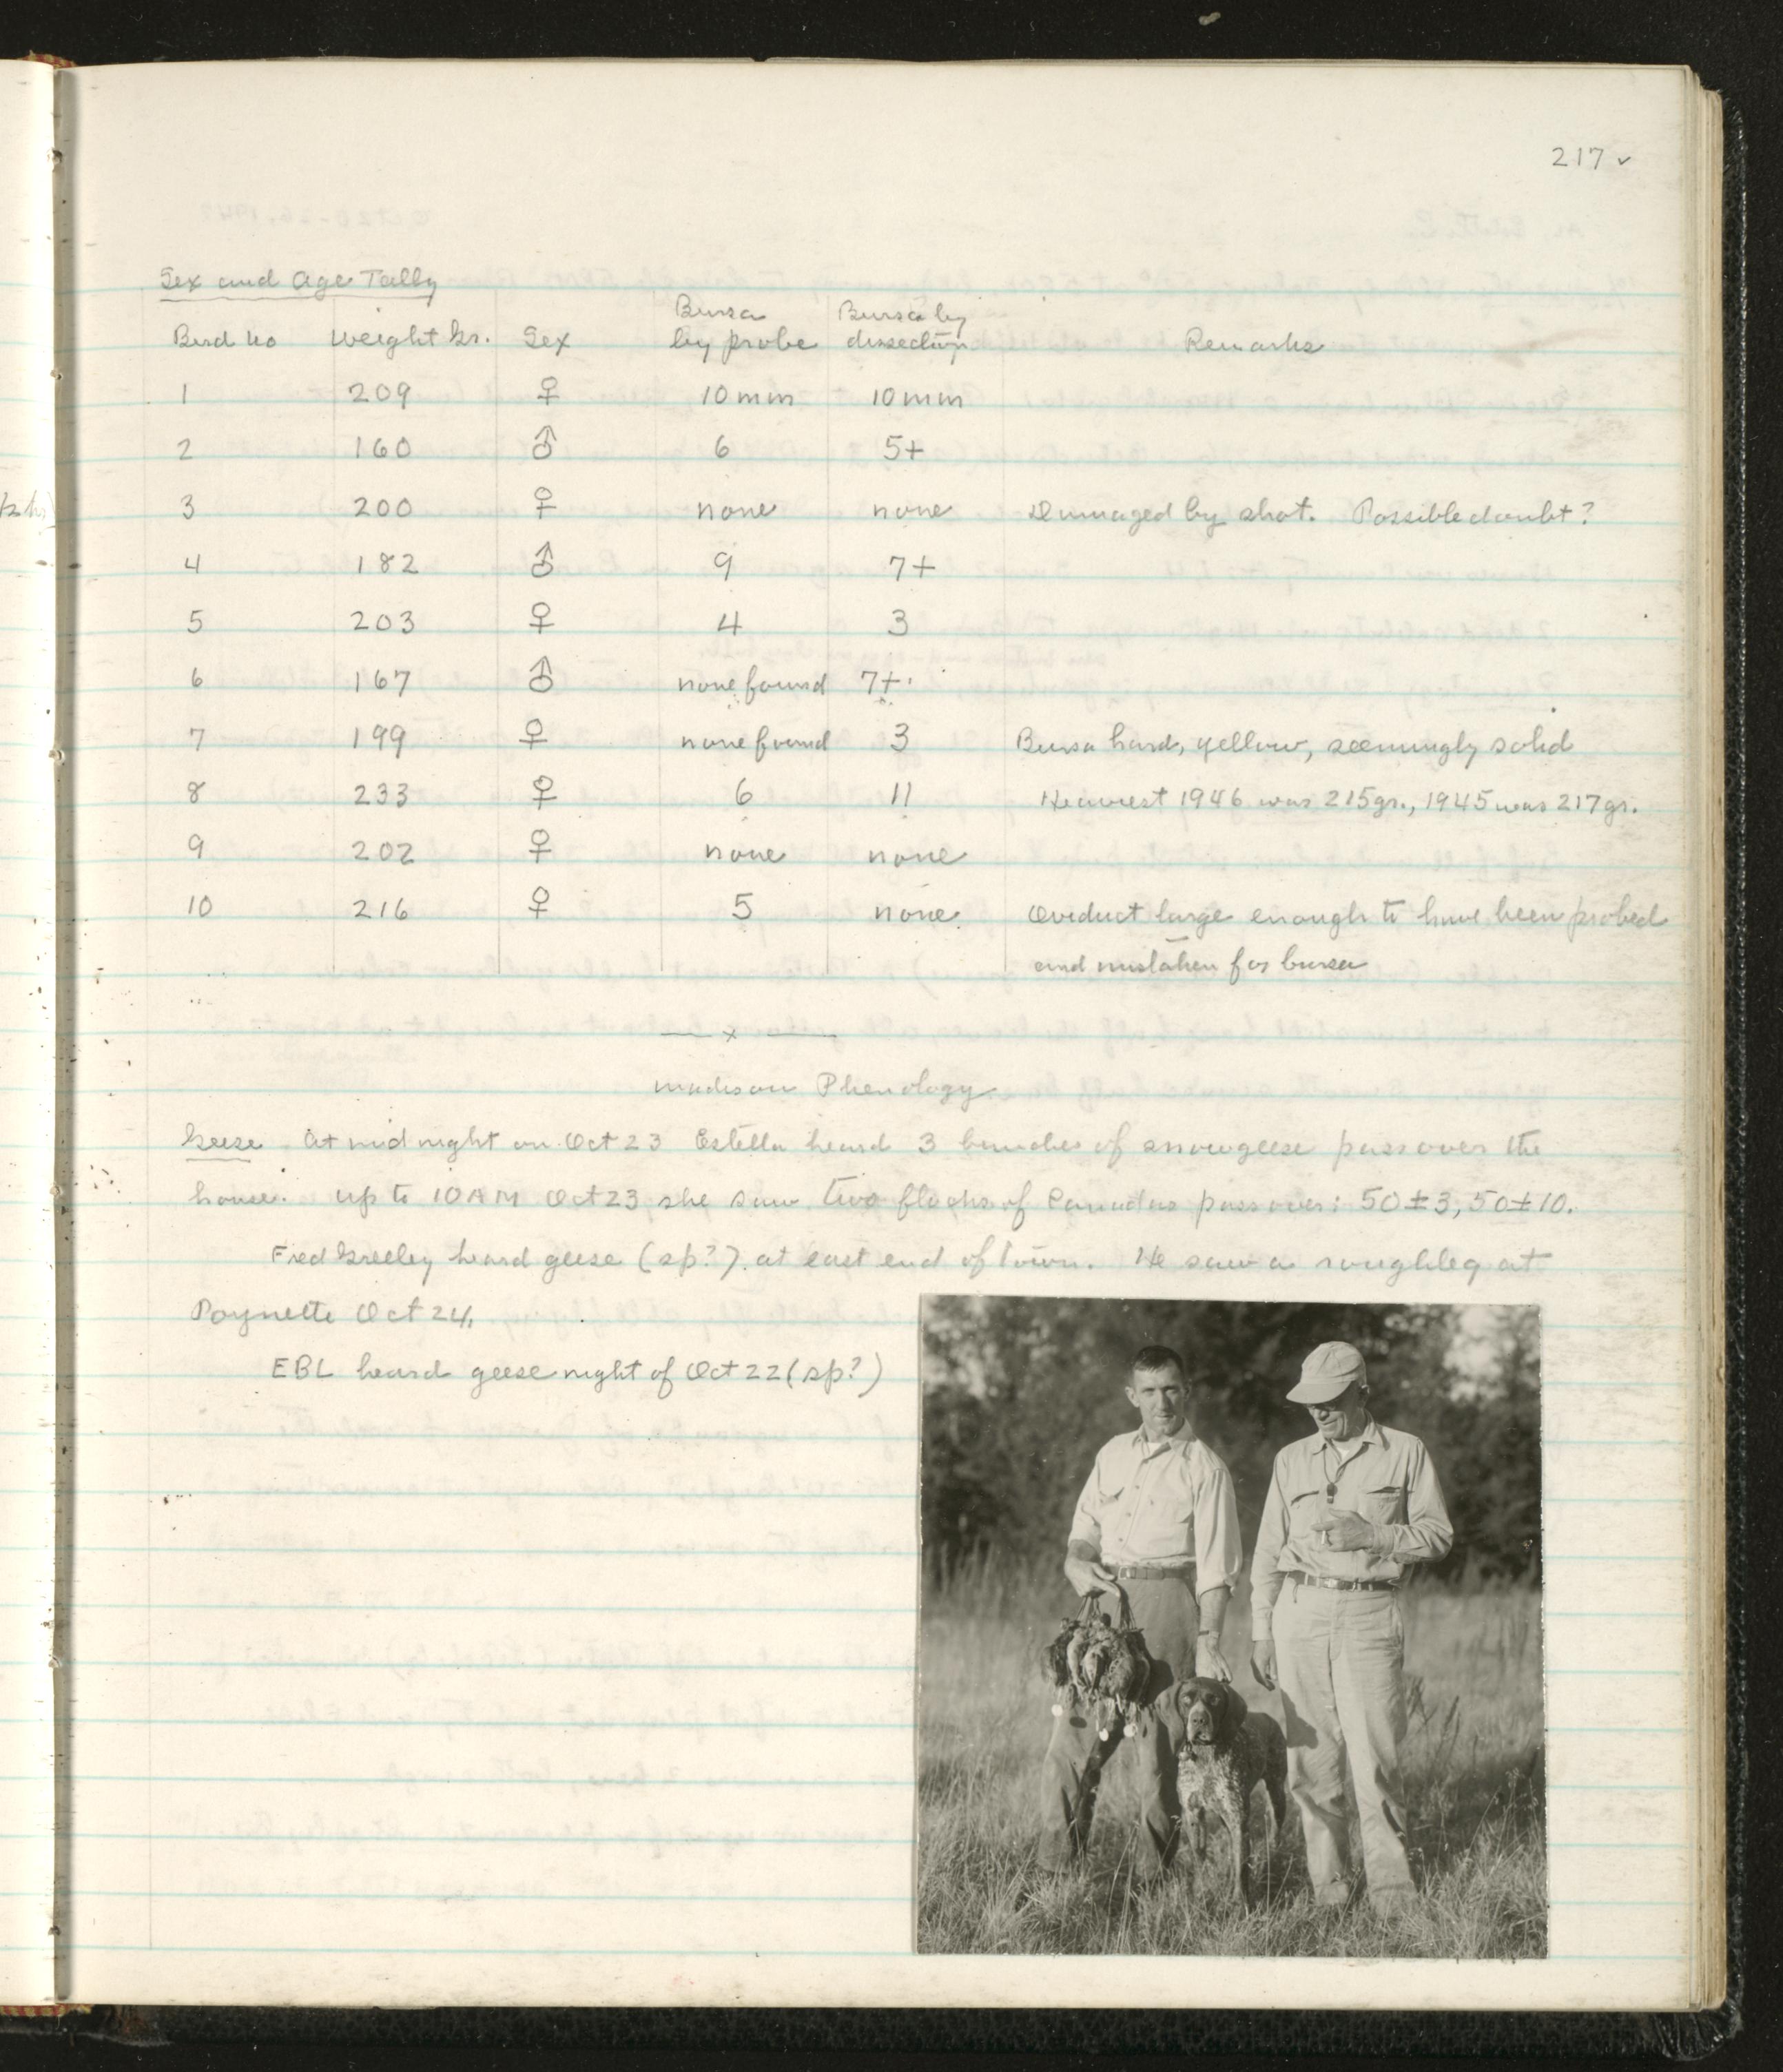 217 ✓
Sex and Age Tally
Bird No Weight Gr. Sex Bursa by probe Bursa by dissection Remarks
1 209 ♀ 10mm 10mm
2 160 ♂ 6 5+
3 200 ♀ none none Damaged by shot. Possible doubt?
4 182 ♂ 9 7+
5 203 ♀ 4 3
6 167 ♂ none found 7+
7 199 ♀ none found 3 Bursa hard, yellow, seemingly solid
8 233 ♀ 6 11 Heaviest 1946 was 215gr., 1945 was 217gr.
9 202 ♀ none none
10 216 ♀ 5 none Oviduct large enough to have been probed
and mistaken for bursa
— x —
Madison Phenology
Geese At midnight on Oct 23 Estella heard 3 bunches of snowgeese pass over the
house. Up to 10AM Oct 23 she saw two flocks of Canadas pass over: 50±3, 50±10.
Fred Greeley heard geese (sp?) at east end of town. He saw a roughleg at
Poynette Oct 24.
EBL heard geese night of Oct 22 (sp?)